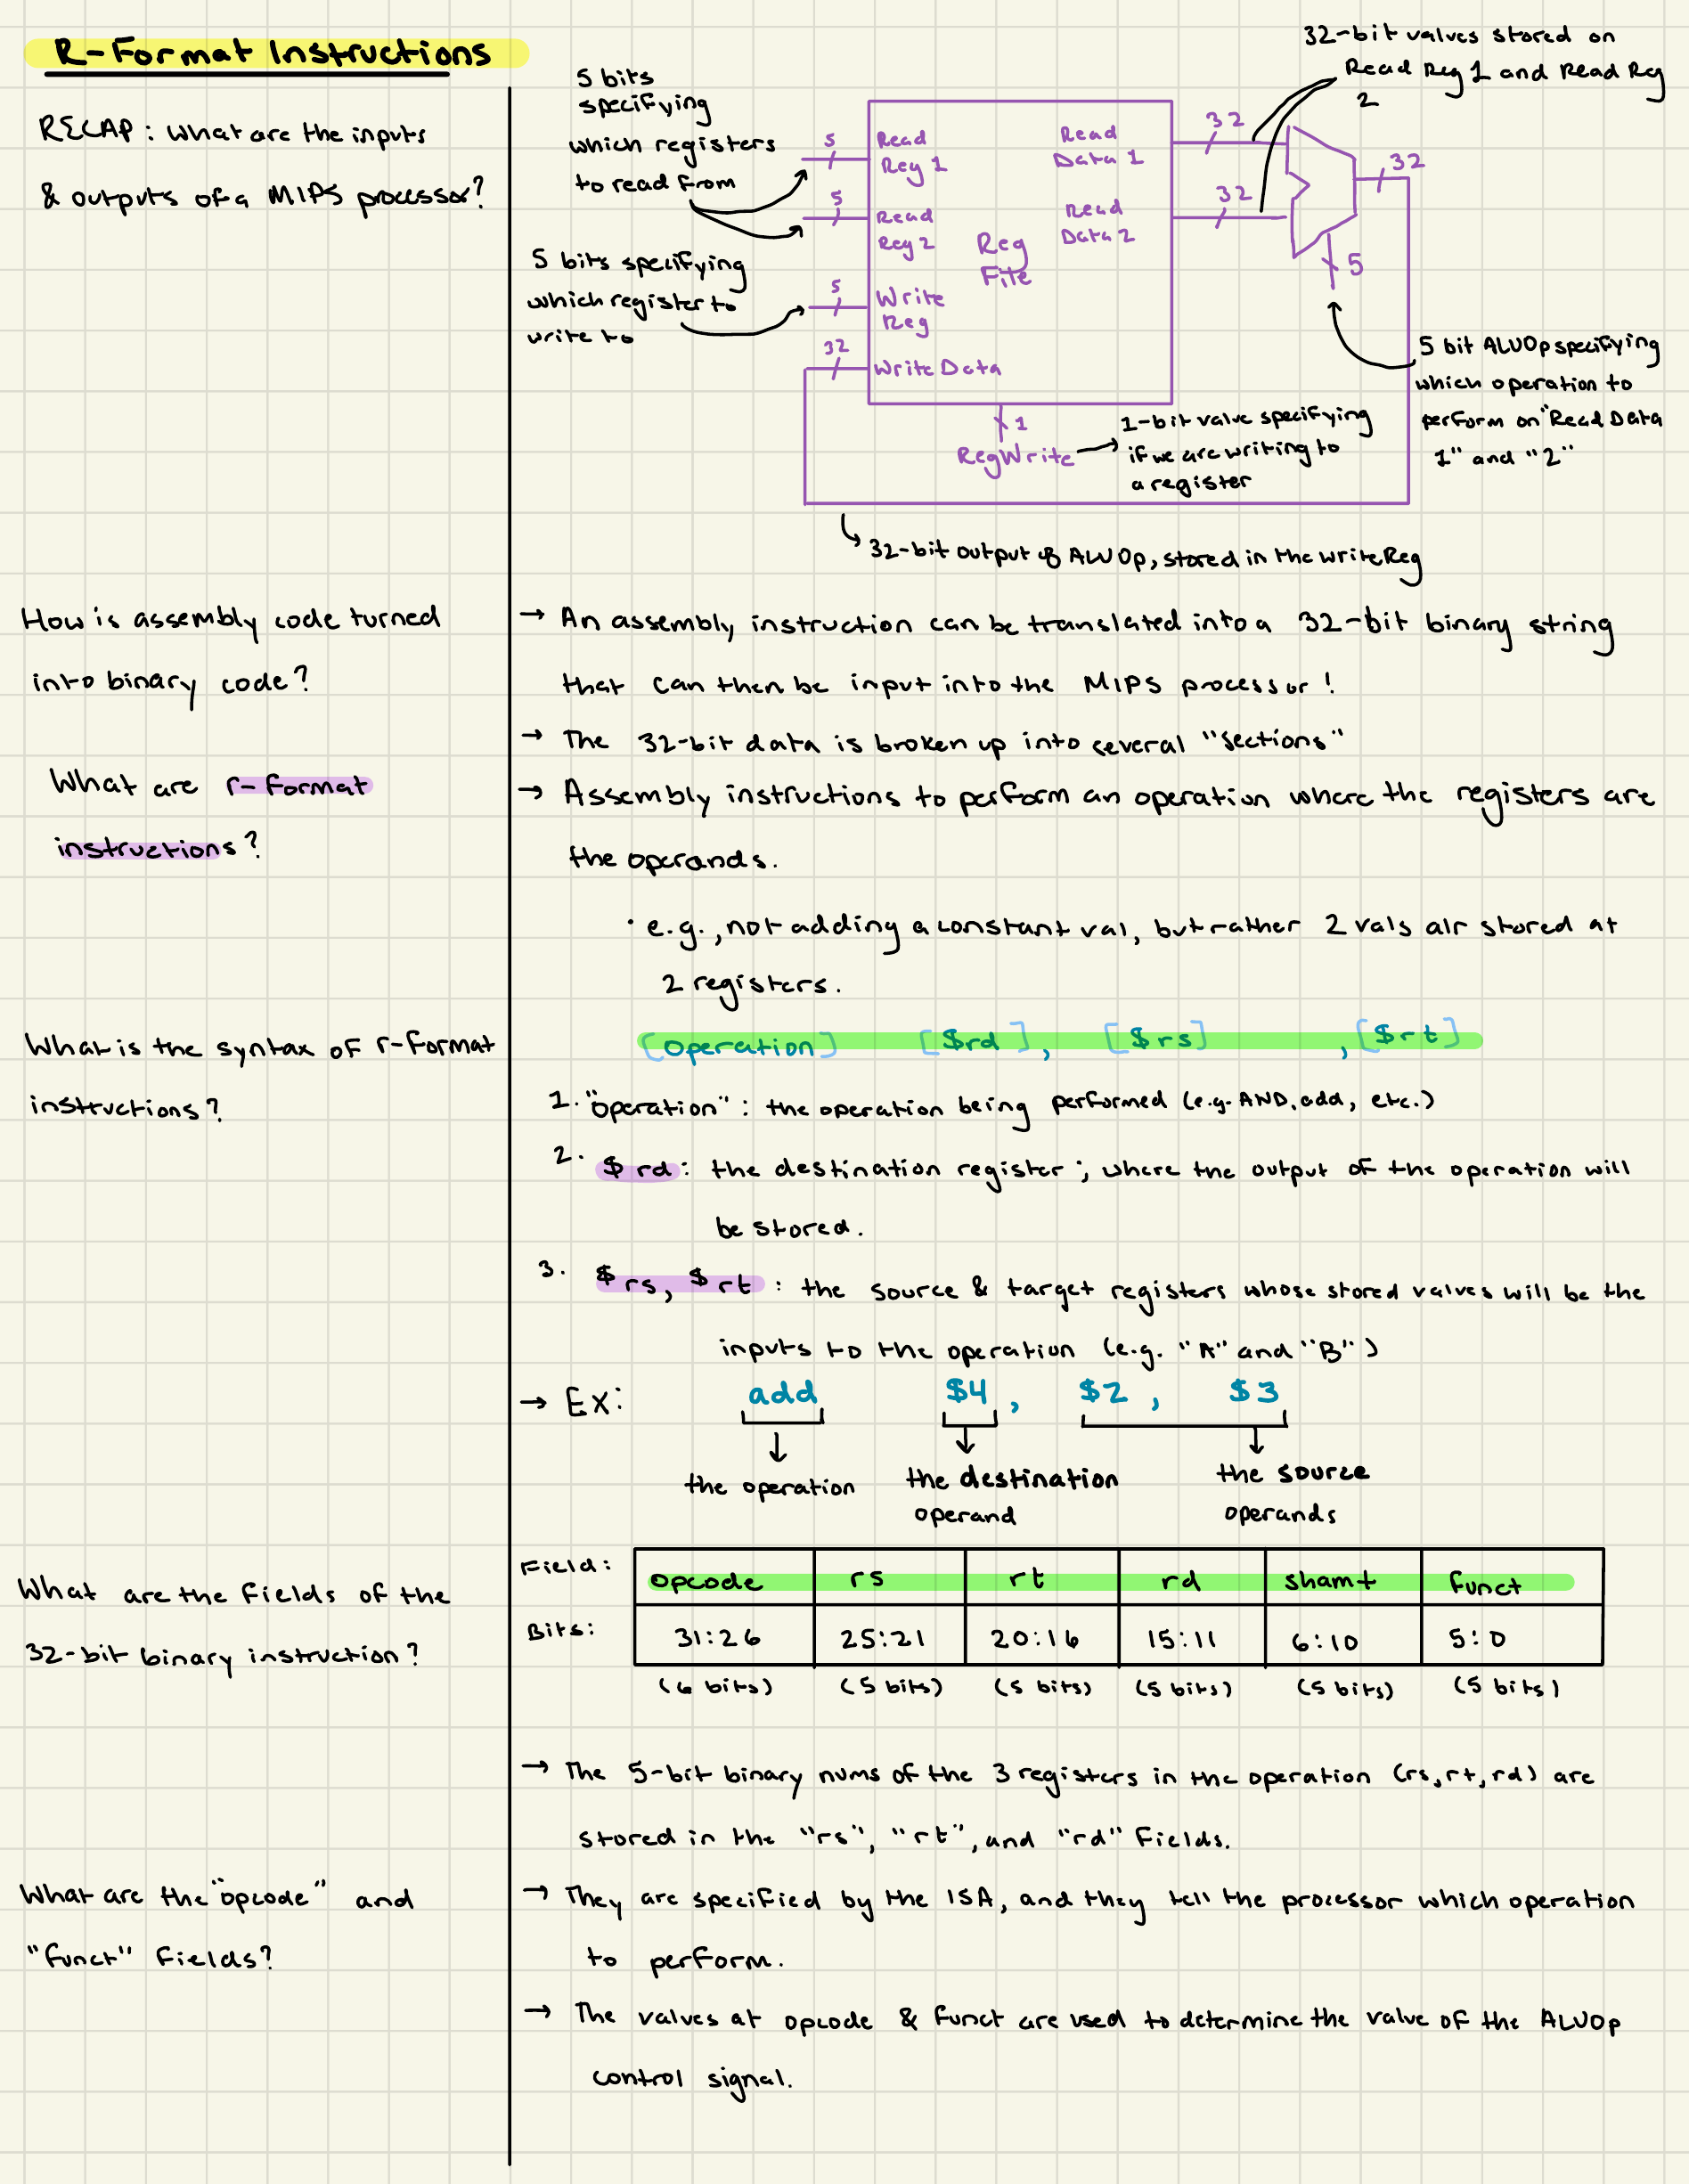 R-Format Instructions
RECAP: What are the inputs
& outputs of a MIPS processor?
5 bits
specifying
which registers
to read from
5 bits specifying
which register to
write to
5
5
5
32
Read
Reg 1
Read
Reg 2
Write
Reg
Write Data
Reg
File
Read
Data 1
Read
Data 2
1
RegWrite
1-bit value specifying
if we are writing to
a register
32
32
32
5
32-bit values stored on
Read Reg 1 and Read Reg
2
5 bit ALUOp specifying
which operation to
perform on "Read Data
1" and "2"
32-bit output of ALUOp, stored in the writeReg
How is assembly code turned
into binary code?
→ An assembly instruction can be translated into a 32-bit binary string
that can then be input into the MIPS processor!
→ The 32-bit data is broken up into several "sections"
What are r-format
instructions?
→ Assembly instructions to perform an operation where the registers are
the operands.
• e.g., not adding a constant val, but rather 2 vals alr stored at
2 registers.
What is the syntax of r-format
instructions?
[operation] [$rd], [$rs] , [$rt]
1. "operation": the operation being performed (e.g. AND, add, etc.)
2. $rd: the destination register; where the output of the operation will
be stored.
3. $rs, $rt: the source & target registers whose stored values will be the
inputs to the operation (e.g. "A" and "B")
→ Ex: add $4, $2, $3
the operation
the destination
operand
the source
operands
What are the fields of the
32-bit binary instruction?
Field: opcode rs rt rd shamt funct
Bits: 31:26 25:21 20:16 15:11 6:10 5:0
(6 bits) (5 bits) (5 bits) (5 bits) (5 bits) (5 bits)
→ The 5-bit binary nums of the 3 registers in the operation (rs, rt, rd) are
stored in the "rs", "rt", and "rd" fields.
What are the "opcode" and
"funct" fields?
→ They are specified by the ISA, and they tell the processor which operation
to perform.
→ The values at opcode & funct are used to determine the value of the ALUOp
control signal.